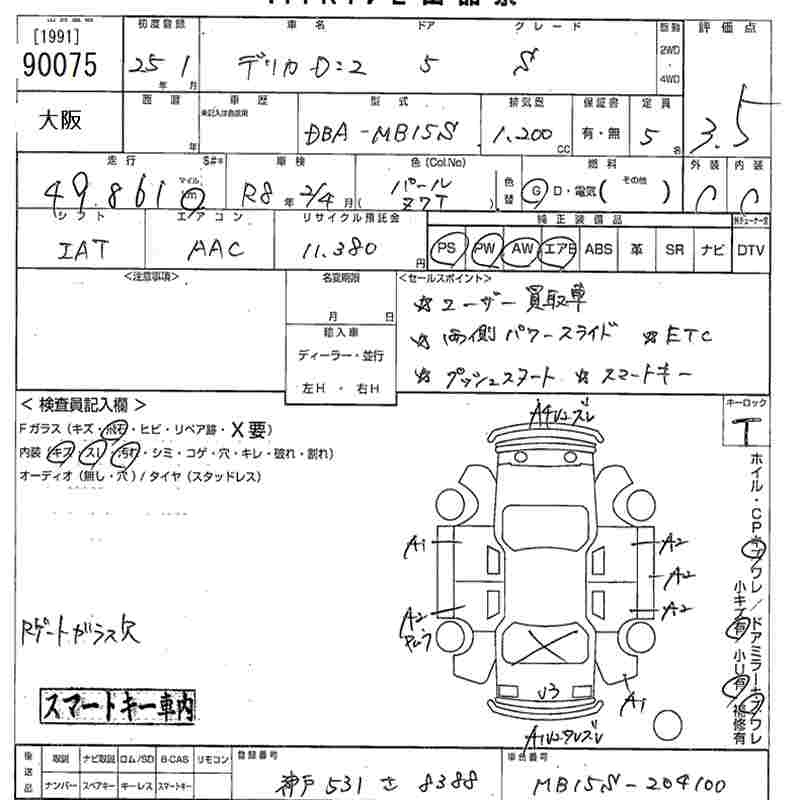 [1991]
90075
初度登録
25年 1月
車名
デリカD:2
ドア
5
グレード
S
駆動
2WD
・
4WD
評価点
3.5
大阪
西暦
年
車歴
未記入は自家用
型式
DBA-MB15S
排気量
1,200 CC
保証書
有・無
定員
5名
走行
49,861
マイル
km
S#*
車検
R8年 2/4月
色(Col.No)
パール
Z7T
色替
燃料
G D・電気( その他 )
外装
C
内装
C
シフト
IAT
エアコン
AAC
リサイクル預託金
11,380円
純正装備品
PS PW AW エアB ABS 革 SR ナビ DTV
<注意事項>
名変期限
月 日
輸入車
ディーラー・並行
左H・右H
<セールスポイント>
☆ユーザー買取車
☆両側パワースライド ☆ETC
☆プッシュスタート ☆スマートキー
<検査員記入欄>
Fガラス(キズ・飛石・ヒビ・リペア跡・X要)
内装(キズ・スレ・汚れ・シミ・コゲ・穴・キレ・破れ・割れ)
オーディオ(無し・穴)/タイヤ(スタッドレス)
キーロック
T
A4U2ズレ
A1
A2
A2
A2
A2
U3
A1
Rゲートガラス欠
スマートキー車内
ホイル・CPキズワレ/ドアミラーキズワレ
小キズ有/小U有・補修有
後送品
取説 ナビ取説 ロム/SD B-CAS リモコン
ナンバー スペアキー キーレス スマートキー
登録番号
神戸 531 さ 8388
車台番号
MB15S-204100